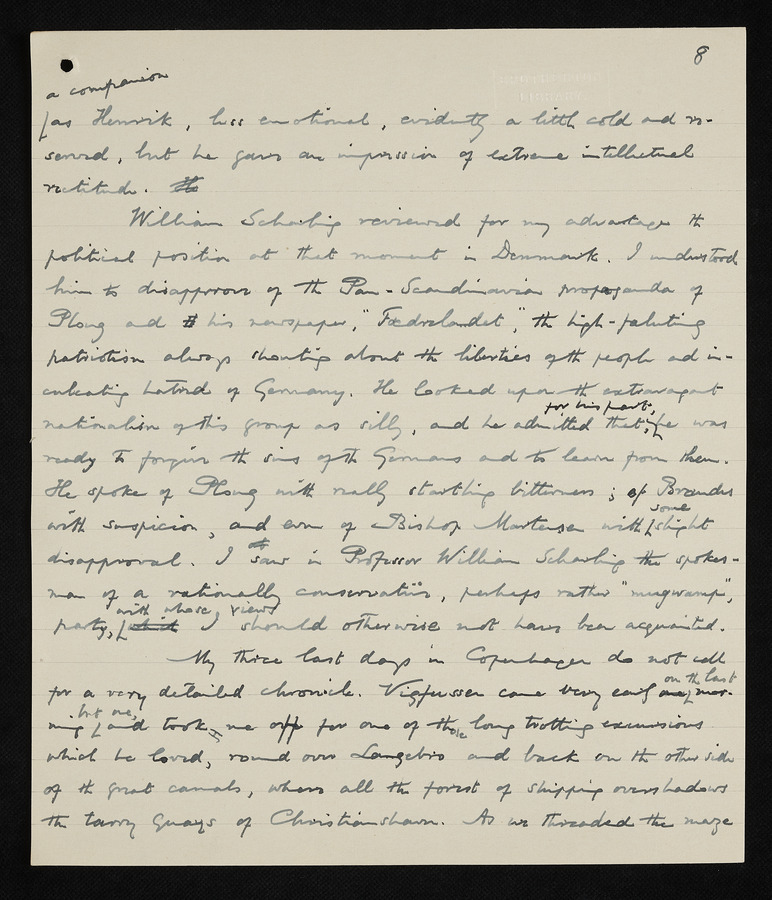 8
a companion
as Henrik, less emotional, evidently a little cold and re-
served, but he gave an impression of extreme intellectual
rectitude.
William Scharling reviewed for my advantage the
political position at that moment in Denmark. I understood
him to disapprove of the Pan-Scandinavian propaganda of
Ploug and his newspaper, "Fædrelandet", the high-faluting
patriotism always shouting about the liberties of the people and in-
culcating hatred of Germany. He looked upon the extravagant
nationalism of this group as silly, and he admitted that, for his part, he was
ready to forgive the sins of the Germans and to learn from them.
He spoke of Ploug with really startling bitterness; of Brandes
with suspicion, and even of Bishop Martensen with some slight
disapproval. I saw in Professor William Scharling the spokes-
man of a rationally conservative, perhaps rather "mugwump",
party, with whose views I should otherwise not have been acquainted.
My three last days in Copenhagen do not call
for a very detailed chronicle. Vigfusson came very early on the last mor-
ning but one, and took me off for one of those long trotting excursions
which he loved, round over Langebro and back on the other side
of the great canals, where all the forest of shipping overshadows
the tarry quays of Christianshavn. As we threaded the maze